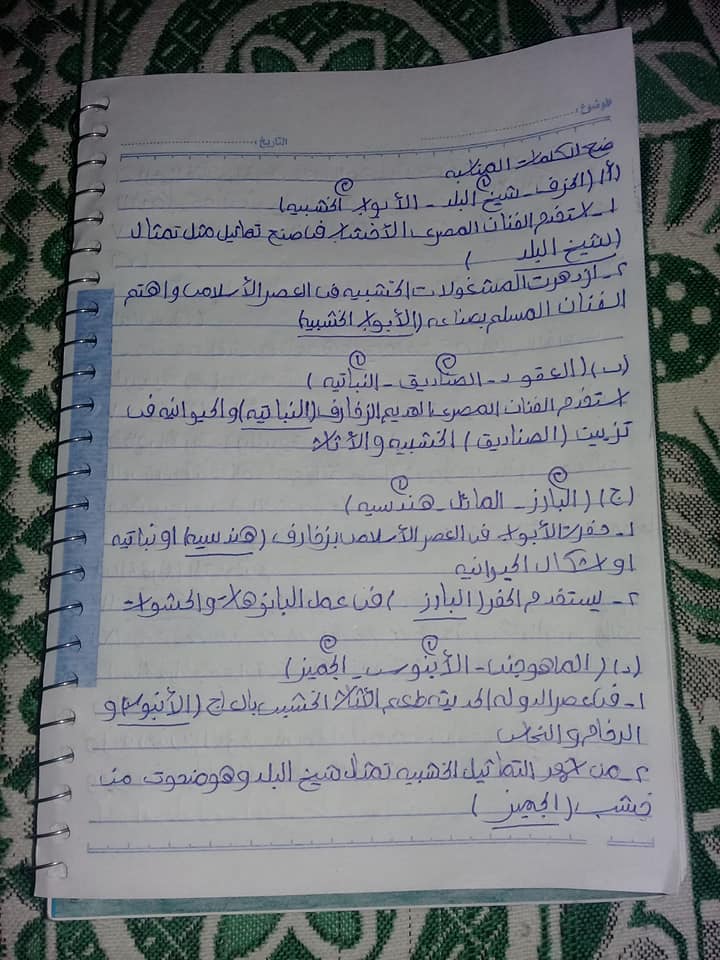 الموضوع:
التاريخ:
ضع الكلمات المناسبه
(أ) (الخزف - شيخ البلد - الأبواب الخشبيه)
١ ٢
١- استخدم الفنان المصرى الأخشاب فى صنع تماثيل مثل تمثال
(شيخ البلد)
٢- ازدهرت المشغولات الخشبيه فى العصر الأسلامى واهتم
الفنان المسلم بصناعه (الأبواب الخشبيه)
(ب) (العقود - الصناديق - النباتيه)
٢ ١
استخدم الفنان المصرى القديم الزخارف (النباتيه) والحيوانه فى
تزيين (الصناديق) الخشبيه والأثاث
(ج) (البارز - المائل - هندسيه)
٢ ١
١- حفرت الأبواب فى العصر الأسلامى بزخارف (هندسيه) او نباتيه
او اشكال الحيوانيه
٢- يستخدم الحفر (البارز) فى عمل البانوهات والحشوات
(د) (الماهوجنى - الأبنوس - الجميز)
١ ٢
١- فى عصر الدوله الحديثه طعم الأثاث الخشبى بالعاج (الأبنوس) و
الرخام والنحاس
٢- من اشهر التماثيل الخشبيه تمثال شيخ البلد وهو منحوت من
خشب (الجميز)